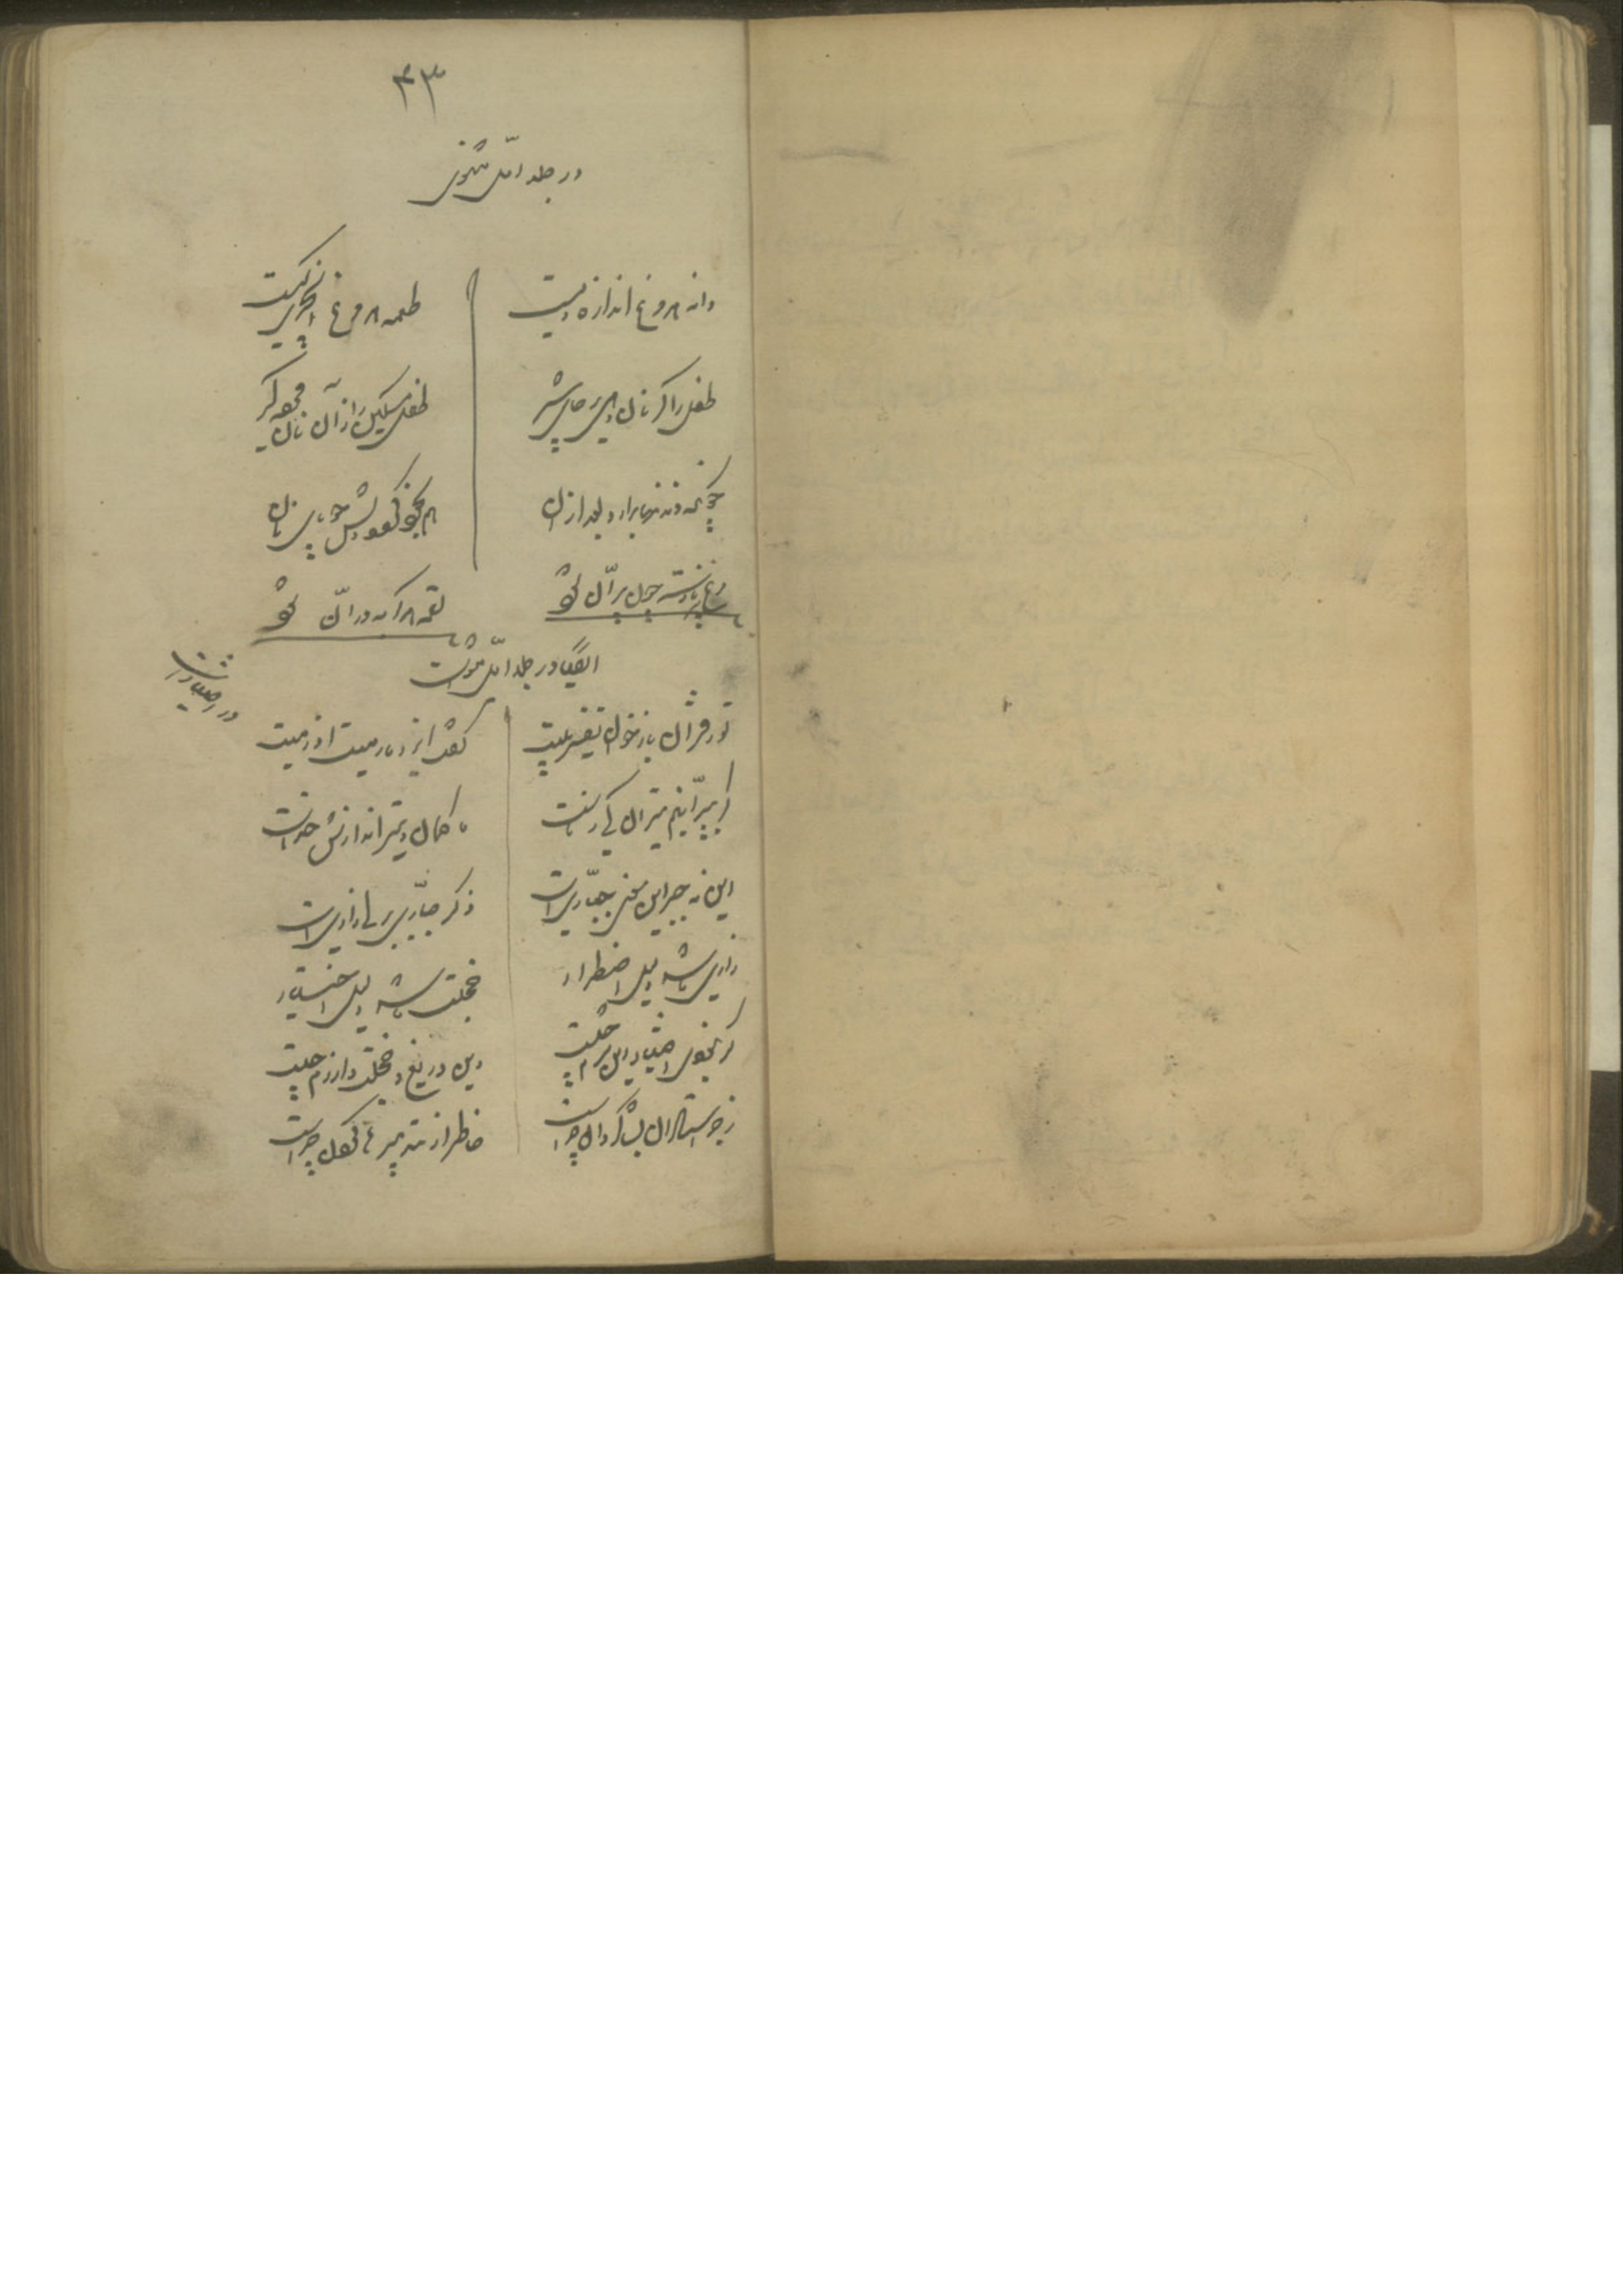 ۴۳
در جلد اول مثنوی
دانه هر مرغ اندازه ویست
طعمه هر مرغ انجیری کیست
طفل را گر نان دهی بر جای شیر
طفل مسکین را از آن نان مرده گیر
چونکه دندانها برآرد بعد از آن
هم بخود گردد دلش جویای نان
مرغ پر نارسته چون پران شود
لقمه هر گربه دران شود
ایضا در جلد اول مثنویست
در اختیار است
تو ز قرآن بازخوان تفسیر بیت
گفت ایزد ما رمیت اذ رمیت
گر بپرانیم تیر آن کی ز ماست
ما کمان و تیراندازش خداست
این نه جبر این معنی جباریست
ذکر جباری برای زاریست
زاری ما شد دلیل اضطرار
خجلت ما شد دلیل اختیار
گر نبودی اختیار این شرم چیست
وین دریغ و خجلت و آزرم چیست
زجر استادان بشاگردان چراست
خاطر از تدبیرها گردان چراست